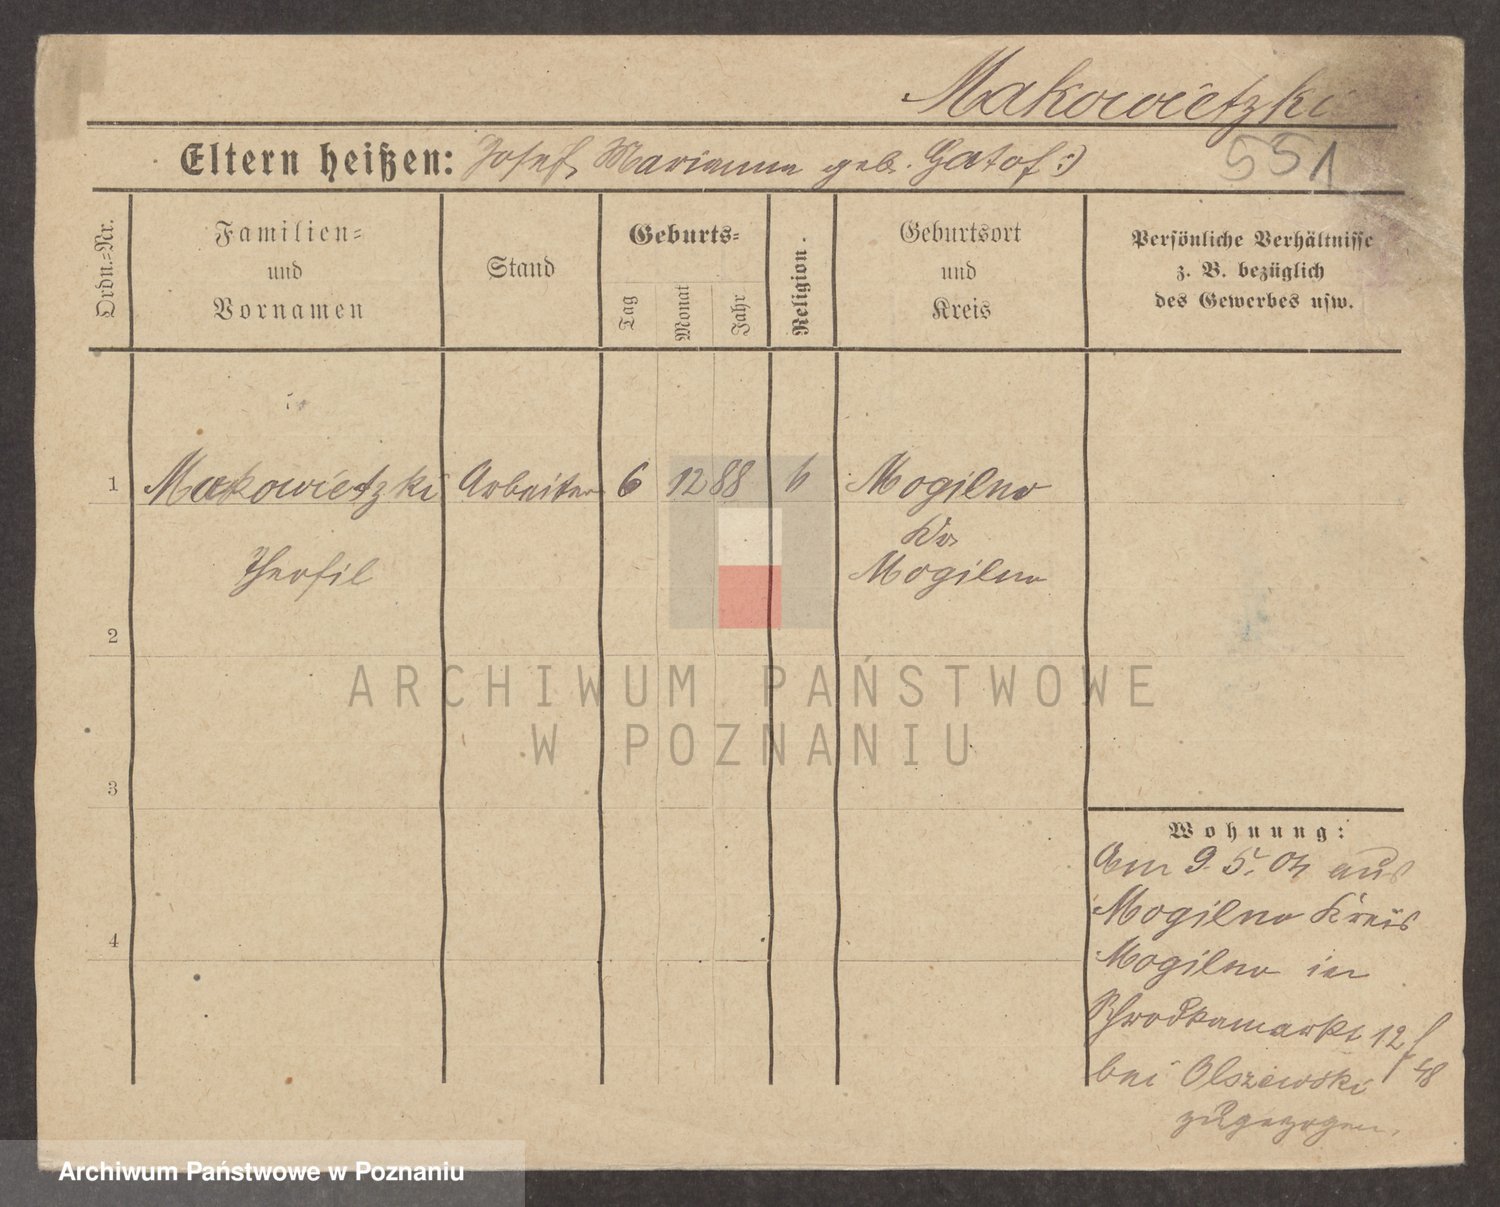 Makowietzki
Eltern heißen: Josef, Marianna geb. Gatof :)
551
Ordn.-Nr.
Familien-
und
Vornamen
Stand
Geburts-
Tag
Monat
Jahr
Religion.
Geburtsort
und
Kreis
Persönliche Verhältnisse
z. B. bezüglich
des Gewerbes usw.
1 Makowietzki Arbeiter 6 12 88 k Mogilno
Kr.
Theofil Mogilno
2
ARCHIWUM PAŃSTWOWE
W POZNANIU
3
Wohnung:
Am 9. 5. 04 aus
Mogilno Kreis
4
Mogilno in
Schrodkamarkt 12/48
bei Olszewski
zugezogen.
Archiwum Państwowe w Poznaniu